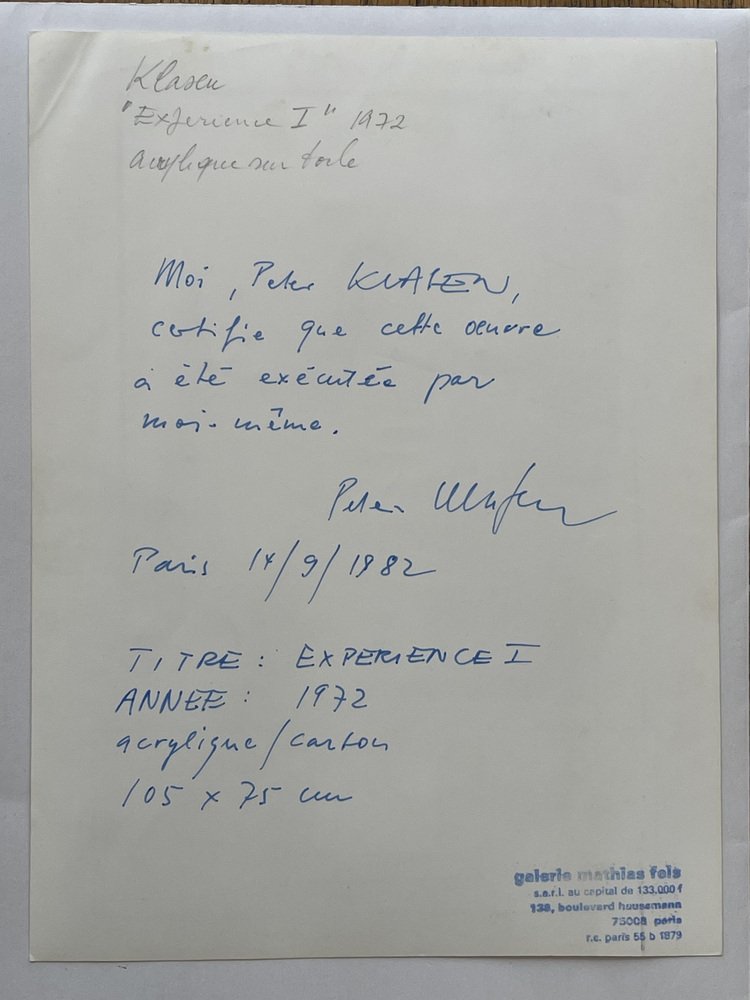 Klasen
"Experience I" 1972
acrylique sur toile
Moi, Peter KLASEN,
certifie que cette œuvre
a été exécutée par
moi-même.
Peter Klasen
Paris 14/9/1982
TITRE : EXPERIENCE I
ANNEE : 1972
acrylique/carton
105 x 75 cm
galerie mathias fels
s.a.r.l. au capital de 133.000 f
138, boulevard haussmann
75008 paris
r.c. paris 55 b 1879